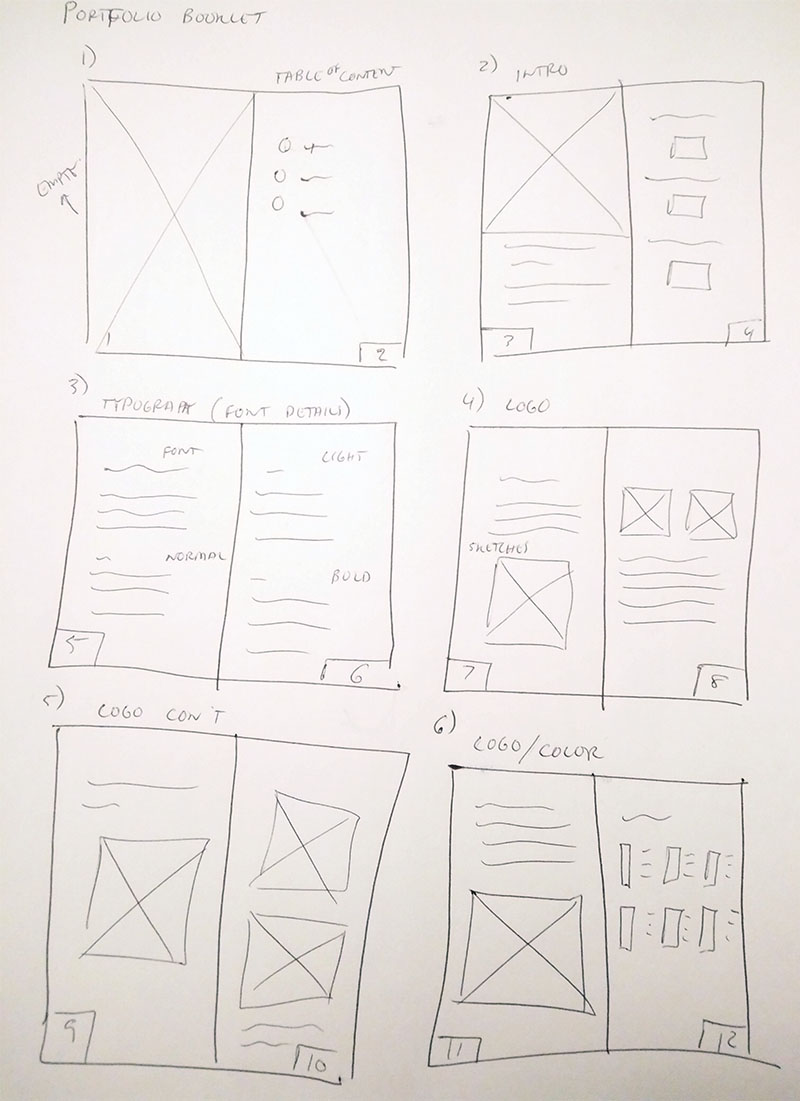 PORTFOLIO BOOKLET
1)
TABLE OF CONTENT
EMPTY
1
2
2) INTRO
3
4
3)
TYPOGRAPHY (FONT DETAILS)
FONT
LIGHT
NORMAL
BOLD
5
6
4) LOGO
SKETCHES
7
8
5)
LOGO CON'T
9
10
6)
LOGO/COLOR
11
12